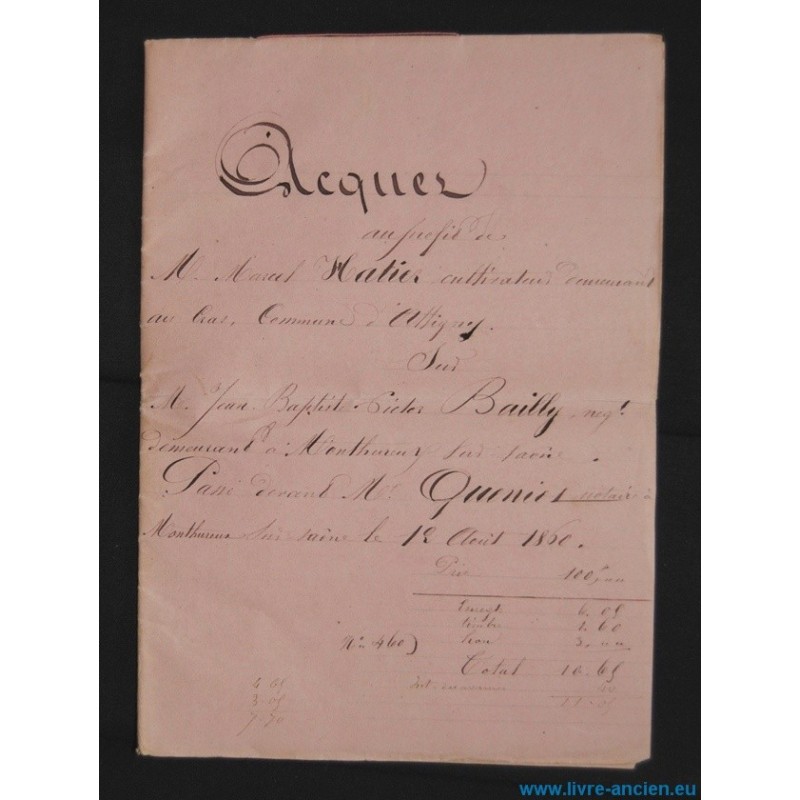 Acquet
au profit de
M. Marcel Hatier cultivateur demeurant
au Gras, Commune d'Attigny.
Sur
M. Jean Baptiste Victor Bailly, negt.
demeurant à Monthureux sur saone.
Passé devant Me. Queniot notaire à
Monthureux sur saone le 12 Août 1860.
Prix 100f,,,,
Enregt 6.05
timbre 1.60
3.,,,,
No 460)
Total 10.65
40
11.05
4 65
3.05
7.70
www.livre-ancien.eu